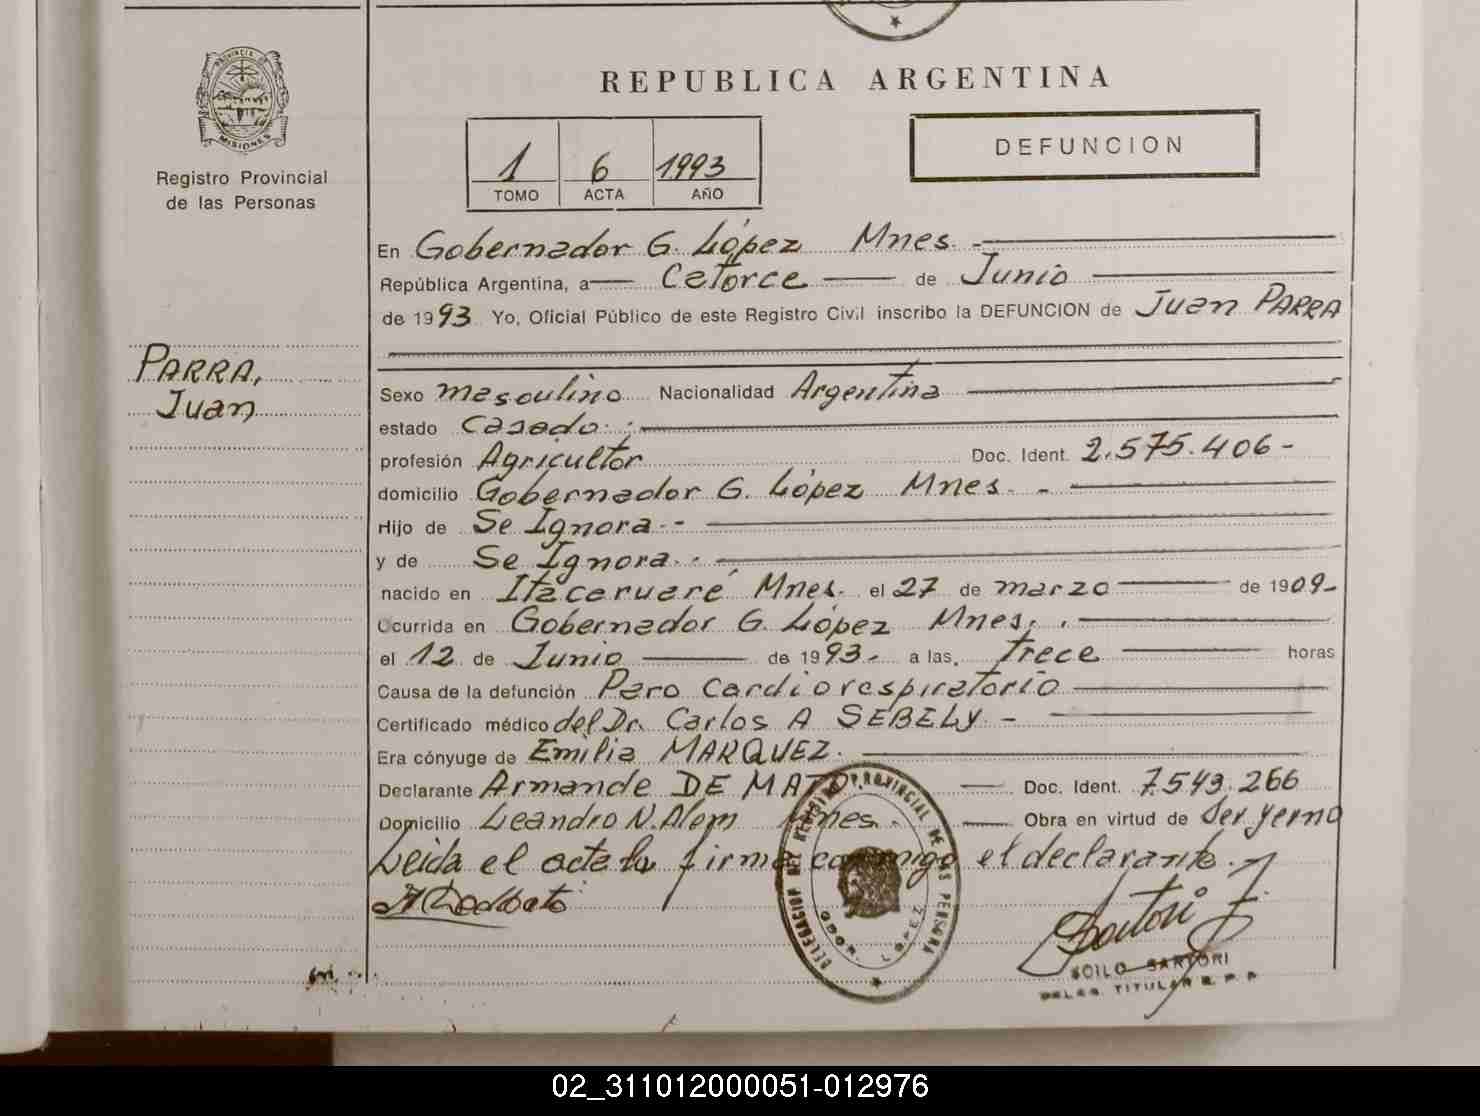 PROVINCIA DE
MISIONES
Registro Provincial
de las Personas
REPUBLICA ARGENTINA
1 6 1993
TOMO ACTA AÑO
DEFUNCION
En Gobernador G. López Mnes. -
República Argentina, a Catorce de Junio
de 1993 Yo, Oficial Público de este Registro Civil inscribo la DEFUNCION de Juan PARRA
PARRA,
Juan
Sexo masculino Nacionalidad Argentina
estado Casado.
profesión Agricultor Doc. Ident. 2.575.406-
domicilio Gobernador G. López Mnes. -
Hijo de Se Ignora.-
y de Se Ignora.
nacido en Itacaruaré Mnes. el 27 de marzo de 1909-
Ocurrida en Gobernador G. López Mnes.
el 12 de Junio de 1993- a las, Trece horas
Causa de la defunción Paro Cardiorespiratorio
Certificado médico del Dr. Carlos A SEBELY -
Era cónyuge de Emilia MARQUEZ.
Declarante Armando DE Doc. Ident. 7.543.266
Domicilio Leandro N. Alem Mnes. Obra en virtud de Ser yerno
Leida el acta la firma conmigo el declarante.
DELEGACION DEL REGISTRO PROVINCIAL DE LAS PERSONAS
GDOR. LOPEZ
Sartori
ZOILO SARTORI
DELEG. TITULAR R. P. P.
02_311012000051-012976